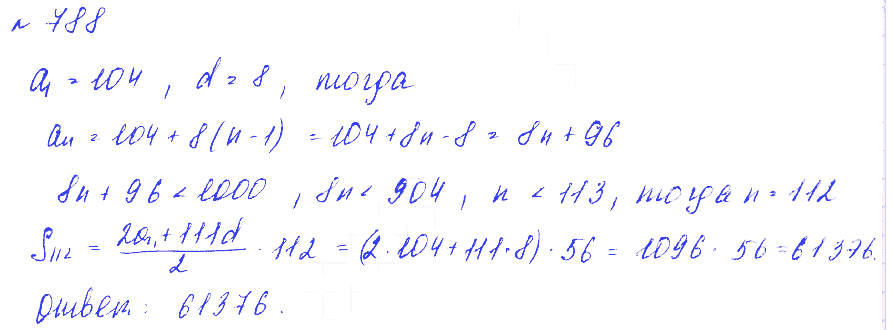 № 788
a₁ = 104, d = 8, тогда
aₙ = 104 + 8(n - 1) = 104 + 8n - 8 = 8n + 96
8n + 96 < 1000, 8n < 904, n < 113, тогда n = 112
S₁₁₂ = (2a₁ + 111d)/2 · 112 = (2 · 104 + 111 · 8) · 56 = 1096 · 56 = 61376.
Ответ: 61376.